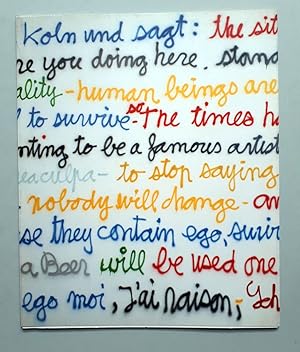 Koln und sagt: the sit
re you doing here. stand
ality - human beings are
l to survive - so The times ha
nting to be a famous artist
ea culpa - to stop saying
- nobody will change - an
se they contain ego, surviv
a Beer will be used one
ego moi, J'ai raison, - Ich